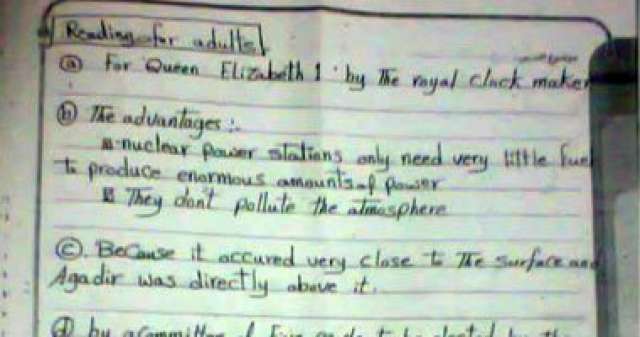 Reading for adults
ⓐ For Queen Elizabeth 1 by The royal clock maker
ⓑ The advantages :-
nuclear power stations only need very little fuel
to produce enormous amounts of power
They don't pollute the atmosphere
ⓒ. Because it occured very close to The surface and
Agadir was directly above it.
ⓓ by a committee of